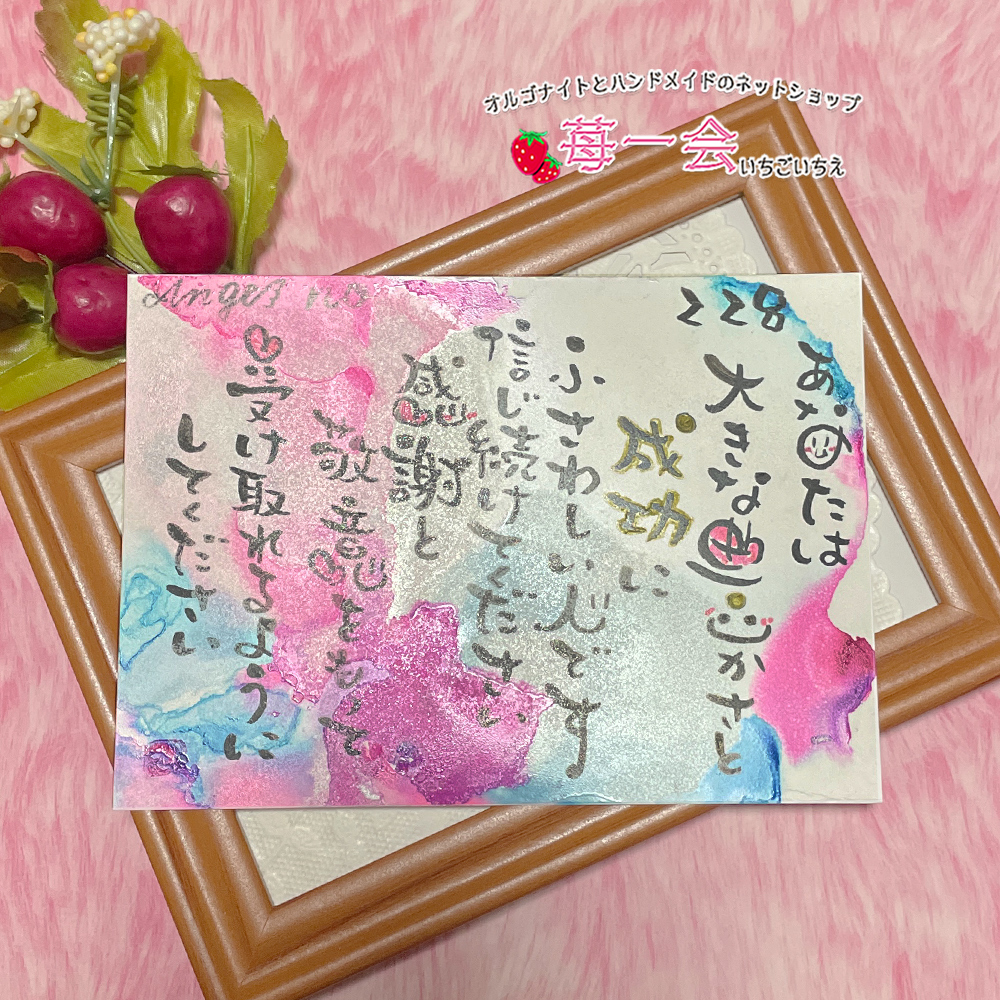 オルゴナイトとハンドメイドのネットショップ
苺一会
いちごいちえ
Angel no
228
あなたは
大きな豊かさと
成功に
ふさわしい人です
信じ続けてください
感謝と
敬意をもって
受け取れるように
してください